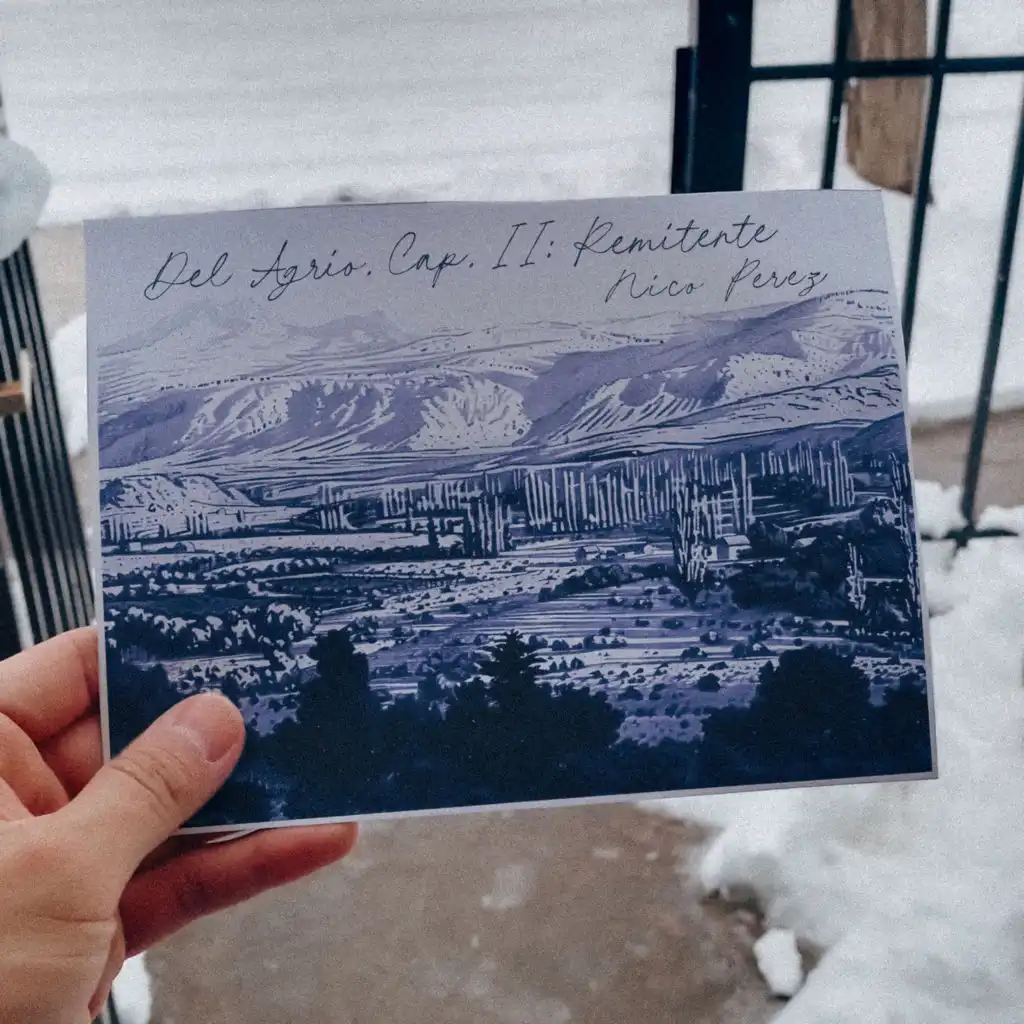 Del Agrio. Cap. II: Remitente
Nico Perez